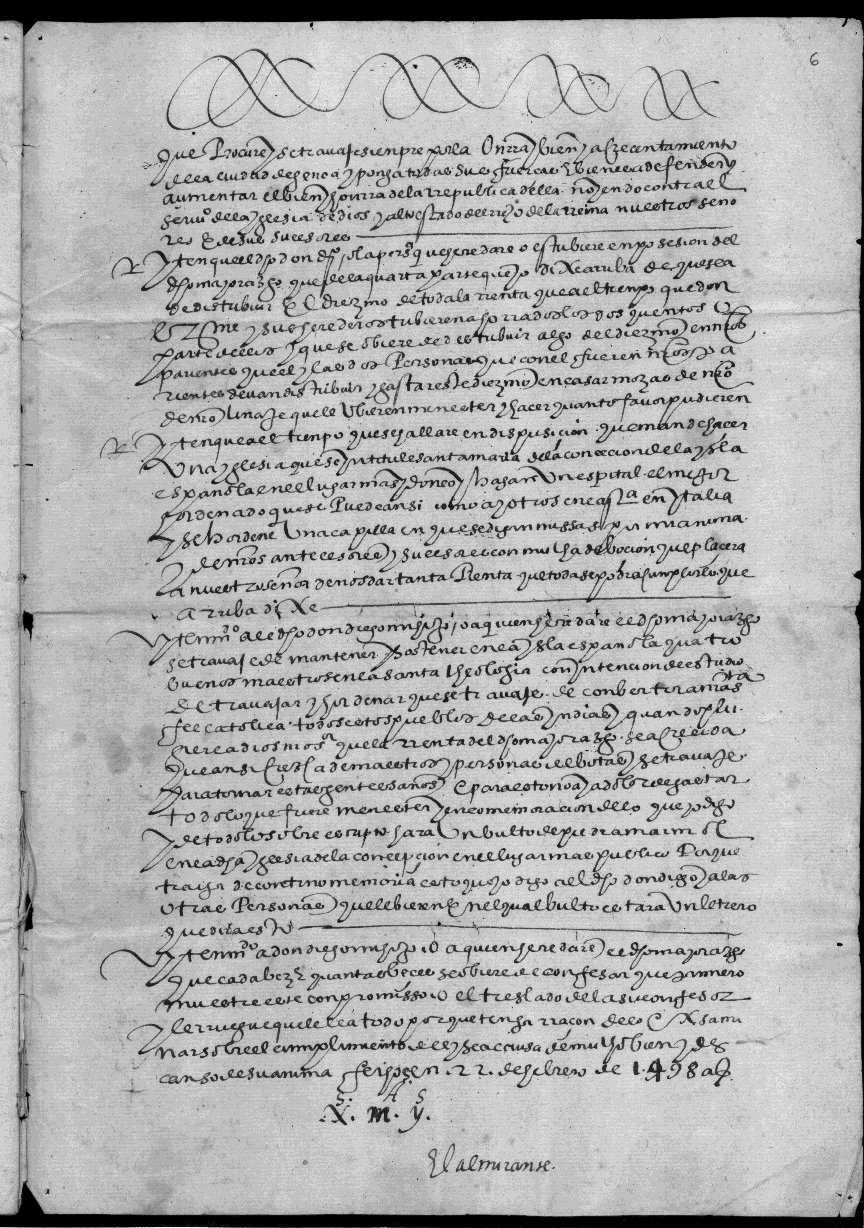 6
que Procure y se travaje sienpre por la Onrra y bien y acrecentamiento
de la ciudad de genoa y ponga todas sus fuerças e bienes en defender y
aumentar el bien y honrra de la rrepublica della no yendo contra el
serviº de la yglesia de dios y alto estado del rrey o de la rreina nuestros seño
res e de sus sucesores
Yten que el dho don diº o la persª que heredare o estubiere en posesion del
dho mayorazgo que de la quarta parte que yo dixe arriba de que sea
de distribuir el diezmo de toda la rrenta que al tienpo que don
y sus herederos tubieren ahorrados los dos quentos
parte dellos y que se obiere de destribuir algo del diezmo en nros
parientes que el y las dos Personas que con el fueren nros pa
rientes devan distribuir y gastar este diezmo en casar moças de nro
de nro linaje que le Ubieren menester y hacer quanto favor pudieren
Yten que al tienpo que se hallare en disputsicion que mande hacer
Una yglesia que se yntitule santa maria de la concecion de la ysla
española en el lugar mas ydoneo y hagan Un espital el mejor
hordenado que se Pueda ansi como ay otros en castª en ytalia
y se hordene Una capilla en que se digan missas por mi anima
y de nros antecesores y sucesores con mucha debocion que placera
a nuestro señor de nos dar tanta Renta que todo se podra cunplir lo que
arriba dixe
Yten mdº al dho don diego mi hijo o a quien heredare el dho mayorazgo
se travaje de mantener y sostener en la ysla española quatro
buenos maestros en la santa theologia con intencion de estudio
de travajar y hordenar que se travaje de conbertir a nra sta
fee catolica todos estos pueblos de las yndias y quando plu
guiere a dios que la rrenta del dho mayorazgo sea crecida
que ansi cresca de maestros y personas debotas y se travaje
para tornar esta gente cristianos e para esto no aya dolor de gastar
todo lo que fuere menester y en comemoracion de lo que yo digo
y de todo lo sobre escripto hara Un bulto de piedra marmol
en la dha yglesia de la concepcion en el lugar mas publico Porque
traiga de contino memoria esto que yo digo al dho don diego y a las
otras Personas que le bieren en el qual bulto estara Un letrero
que dira esto
Yten mdº a don diego mi hijo o a quien heredare el dho mayorazgo
que cada bez y quantas beces se obiere de confesar que primero
muestre este conpromisso o el treslado del a su confesor
y le rruegue que le lea todo porque tenga rraçon de lo exsami
nar sobre el cumplimiento de el y sea causa de mucho bien y des
canso de su anima fecho en .22. de hebrero de 1498 as
S.
S. A. S
X. M. Y.
El almirante.